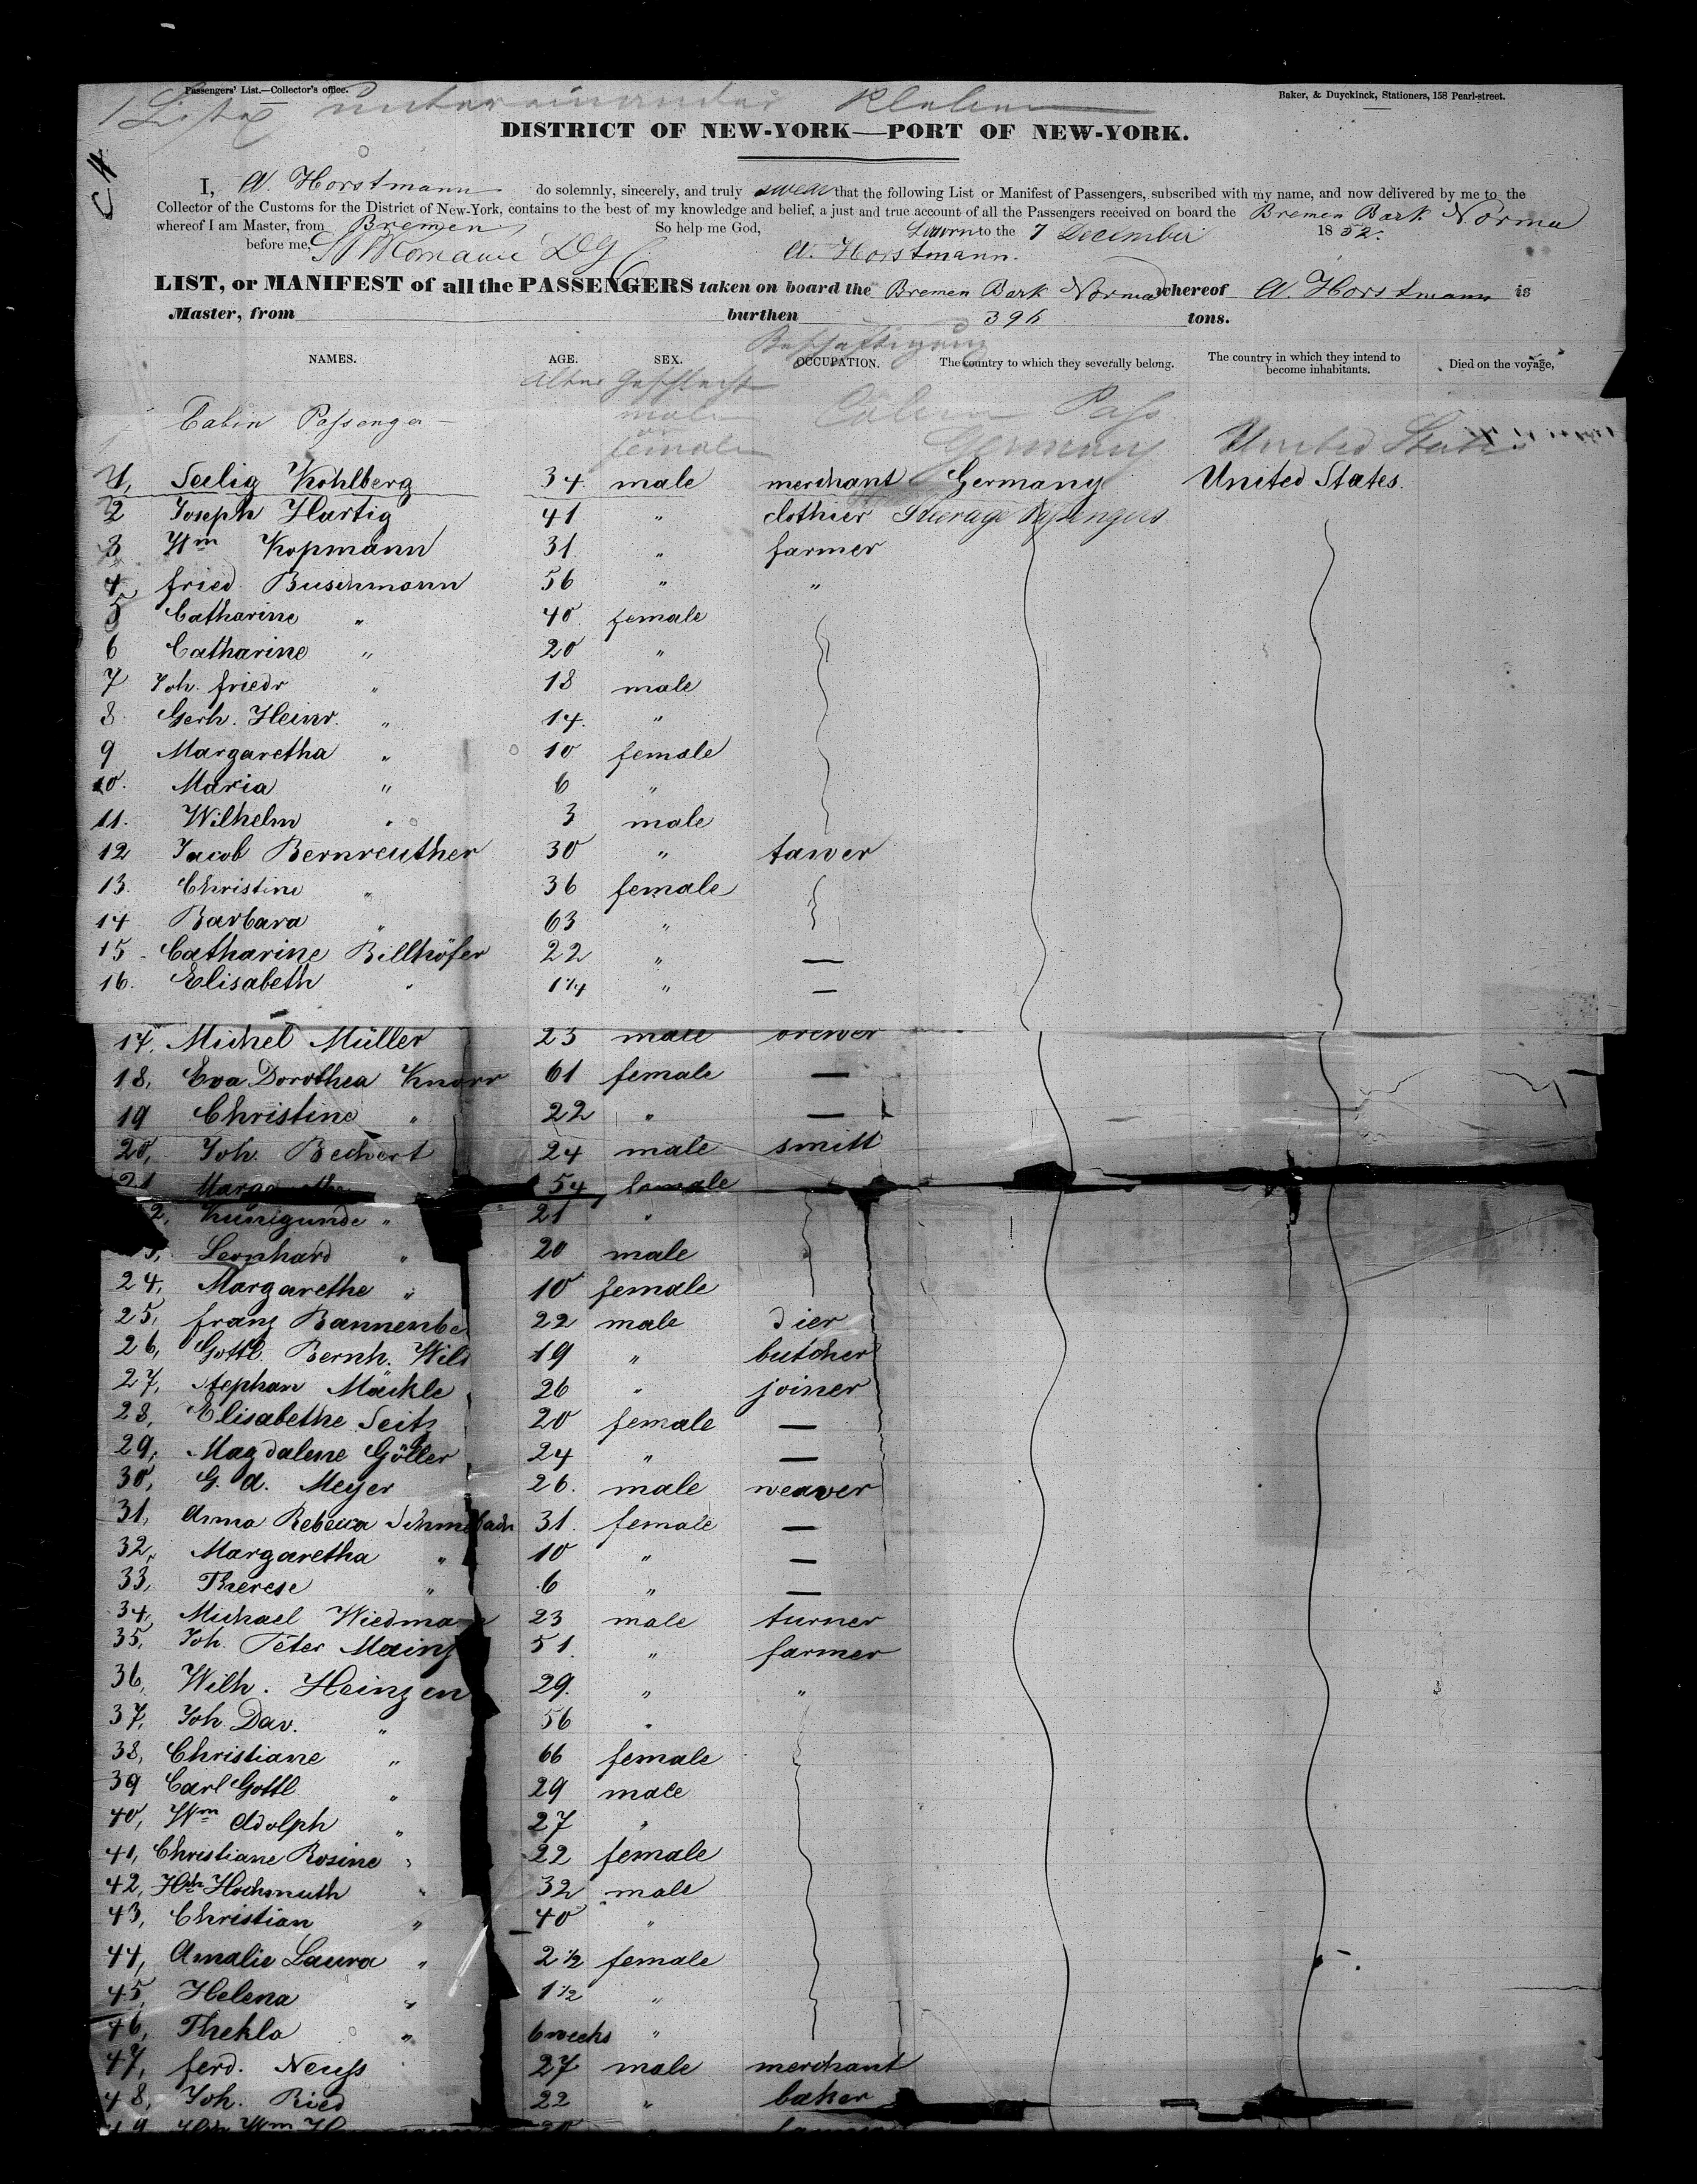 Passengers' List.—Collector's office.
Baker, & Duyckinck, Stationers, 158 Pearl-street.
DISTRICT OF NEW-YORK—PORT OF NEW-YORK.
I, A. Horstmann do solemnly, sincerely, and truly swear that the following List or Manifest of Passengers, subscribed with my name, and now delivered by me to the
Collector of the Customs for the District of New-York, contains to the best of my knowledge and belief, a just and true account of all the Passengers received on board the Bremen Bark Norma
whereof I am Master, from Bremen So help me God, Sworn to the 7 December 1852.
before me, A. Horstmann.
LIST, or MANIFEST of all the PASSENGERS taken on board the Bremen Bark Norma whereof A. Horstmann is
Master, from burthen 396 tons.
Beschäftigung
NAMES. AGE. SEX. OCCUPATION. The country to which they severally belong. The country in which they intend to become inhabitants. Died on the voyage,
Alter Geschlecht
male
Cabin Passenger
female Germany United States
1, Seelig Kohlberg 34. male merchant Germany United States.
2 Joseph Hartig 41 " clothier Steerage Passengers
3 Wm Kopmann 31. " farmer
4 fried. Buschmann 56 " "
5 Catharine " 40. female
6 Catharine " 20 "
7 Joh. friedr " 18 male
8 Gerh. Heinr. " 14. "
9 Margaretha " 10 female
10. Maria " 6 "
11. Wilhelm " 3 male
12 Jacob Bernreuther 30 " tawer
13. Christine " 36 female
14 Barbara " 63 "
15 - Catharine Billhöfer 22 " —
16. Elisabeth " 1 1/4 " —
17. Michel Müller 23 male brewer
18, Eva Dorothea Knorr 61 female —
19 Christine " 22 " —
20, Joh. Bechert 24 male smitt
21 54 female
2, Kunigunde " 21 "
3, Leonhard " 20 male
24, Margarethe " 10 female
25, franz Bannenbe 22 male dier
26, Gottl. Bernh. Wild 19 " butcher
27, Stephan Mäckle 26 " joiner
28, Elisabethe Seitz 20 female —
29, Magdalene Göller 24 " —
30, G. A. Meyer 26. male weaver
31, Anna Rebecca 31. female —
32, Margaretha " 10 " —
33, Therese " 6 " —
34, Michael Wiedmann 23 male turner
35, Joh. Peter Mainz 51. " farmer
36, Wilh. Heinzen 29. " "
37, Joh. Dav. " 56 "
38, Christiane " 66 female
39 Carl Gottl " 29 male
40, Wm Adolph " 27 "
41, Christiane Rosine " 22 female
42, Hch Hochmuth " 32 male
43, Christian " 40 "
44, Amalie Laura " 2 1/2 female
45, Helena " 1 1/2 "
46, Thekla " 6 weeks "
47, ferd. Neuss 27 male merchant
48, Joh. Ried 22 " baker